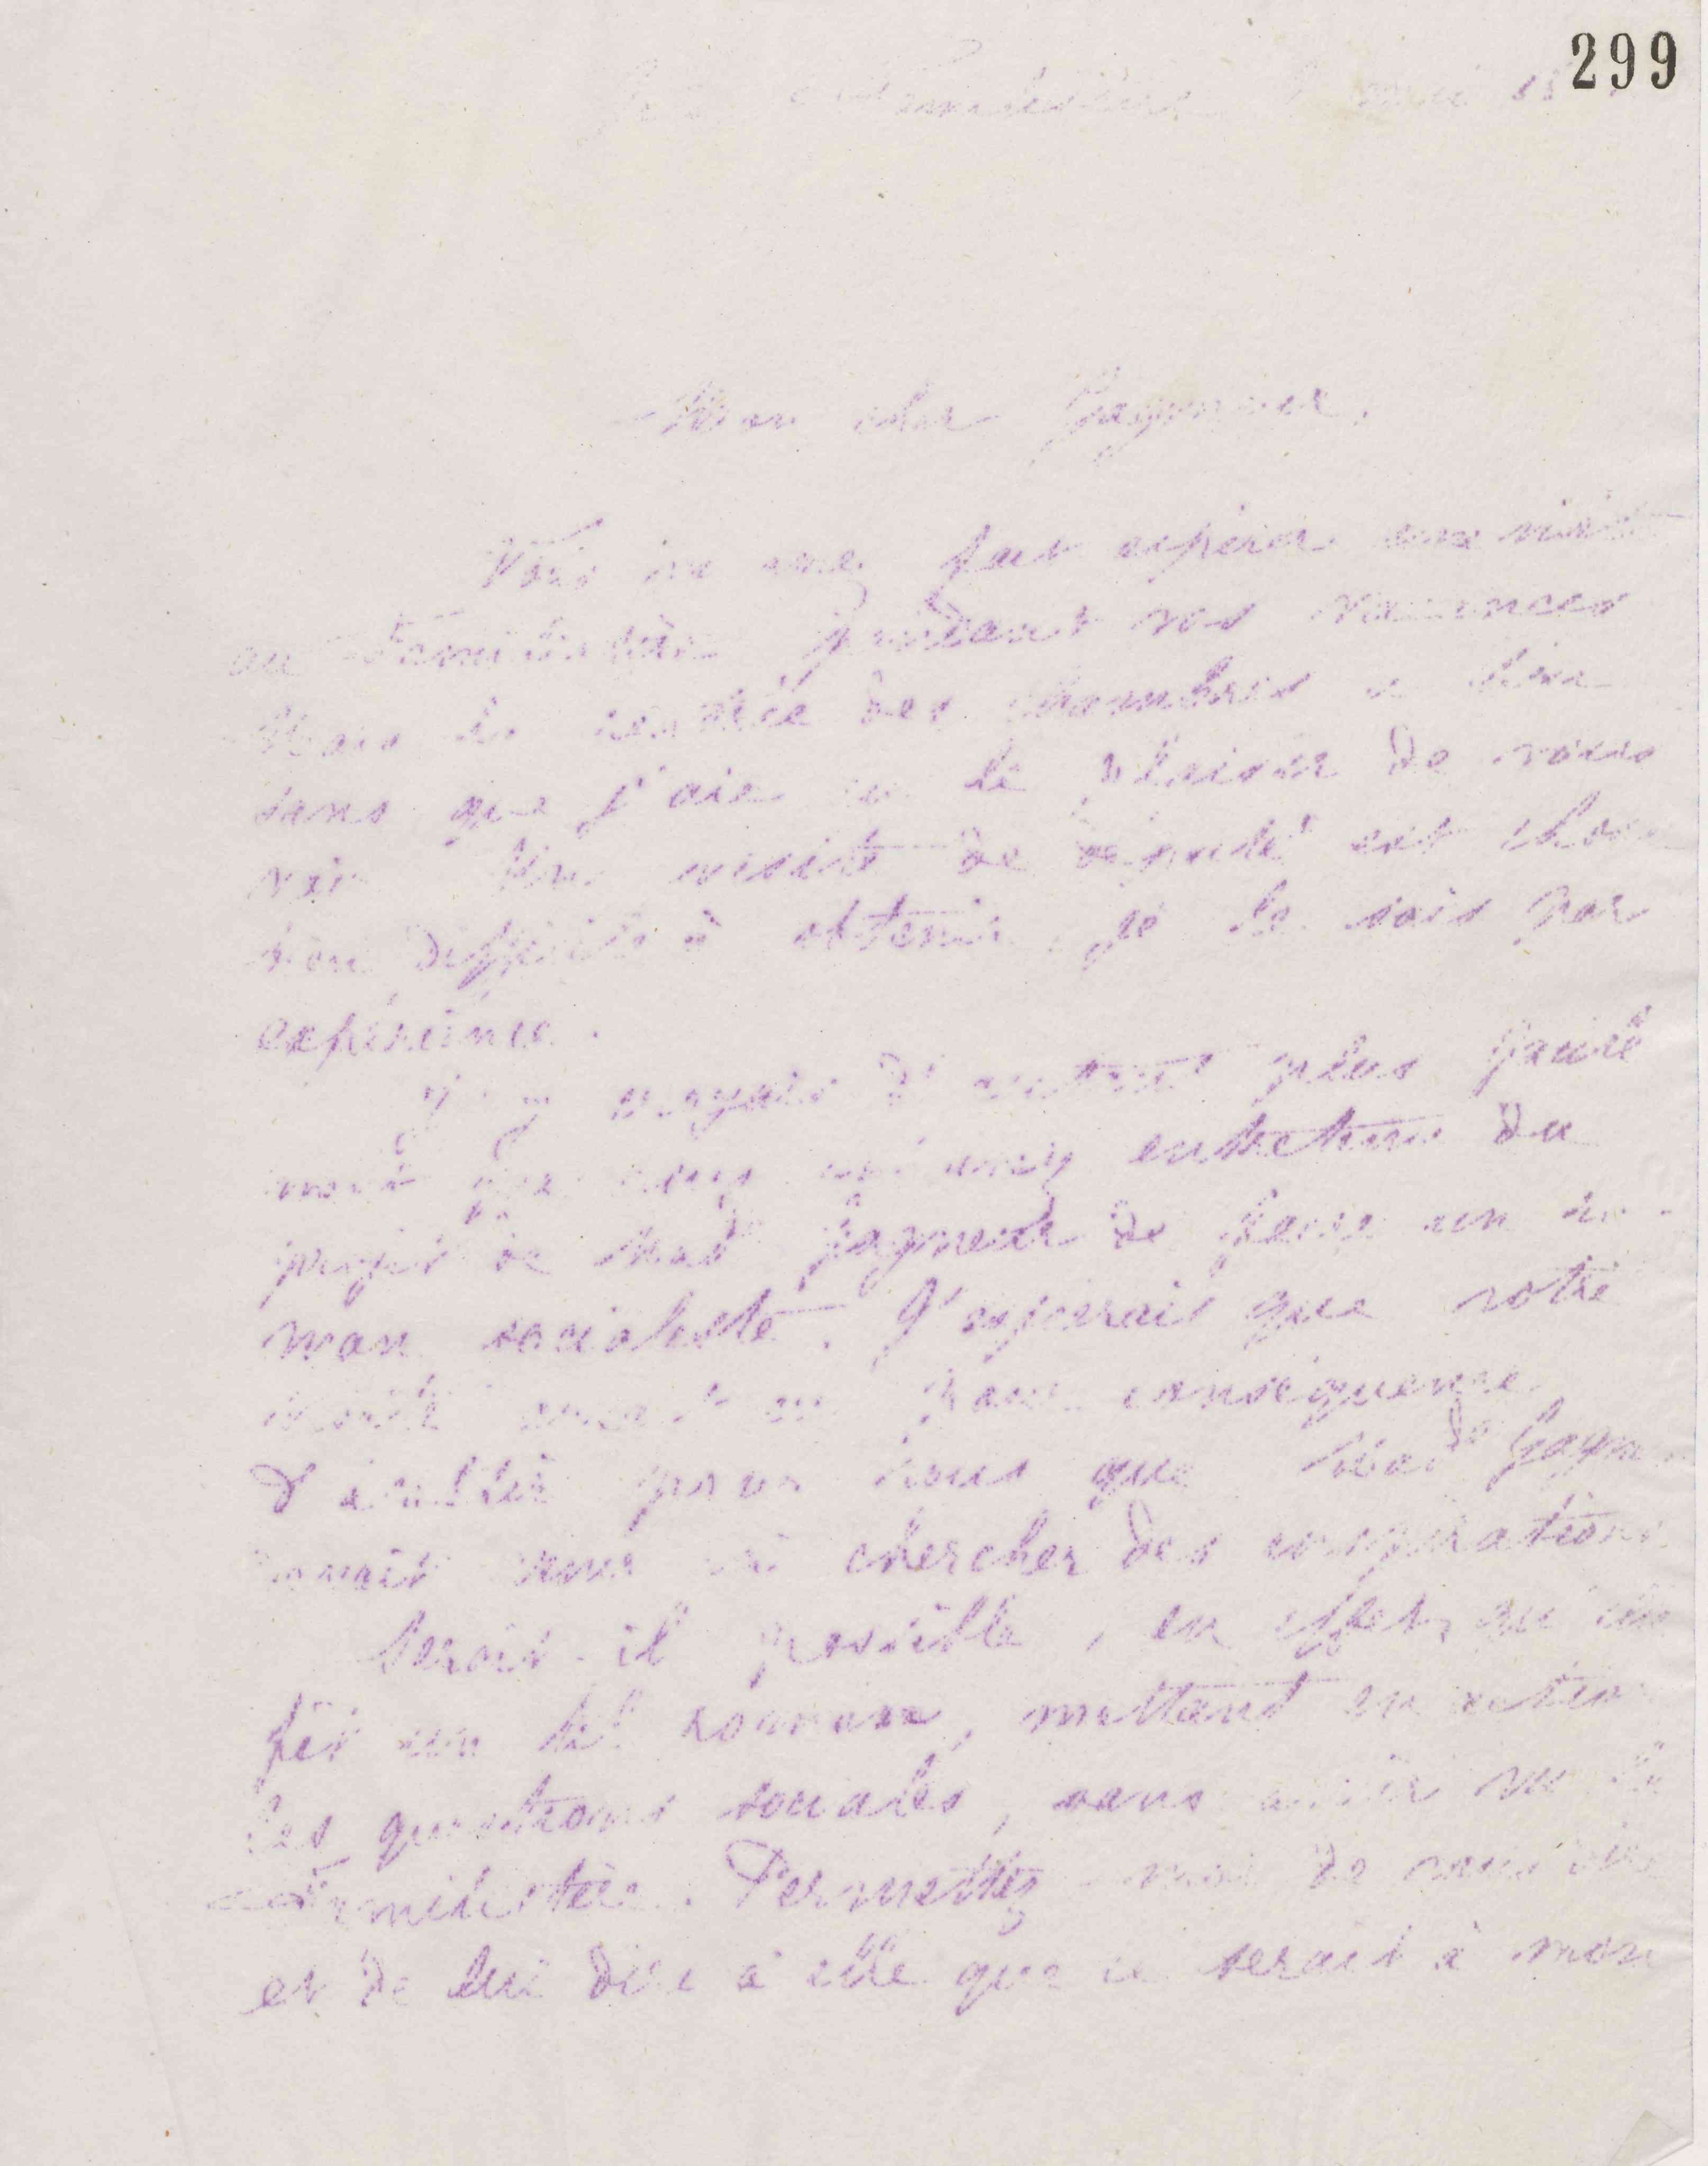 299
Familistère
Mon cher Gagneur,
Vous m'avez fait espérer une visite
au Familistère pendant vos vacances
Mais la rentrée des chambres a lieu
sans que j'aie eu le plaisir de vous
voir. Une visite de député est chose
bien difficile à obtenir, je le sais par
expérience.
J'y voyais d'autant plus facilité
que vous m'avez entretenu du
projet de Mad^e Gagneur de faire un ro-
man socialiste. J'espérais que votre
visite aurait eu pour conséquence
d'établir pour nous que Mad^e Gagneur
venir chercher des inspirations
Serait-il possible, en effet, qu'on
fît un tel roman, mettant en action
les questions sociales, sans avoir vu le
Familistère. Permettez-moi de vous dire
et de lui dire à elle que ce serait à mon